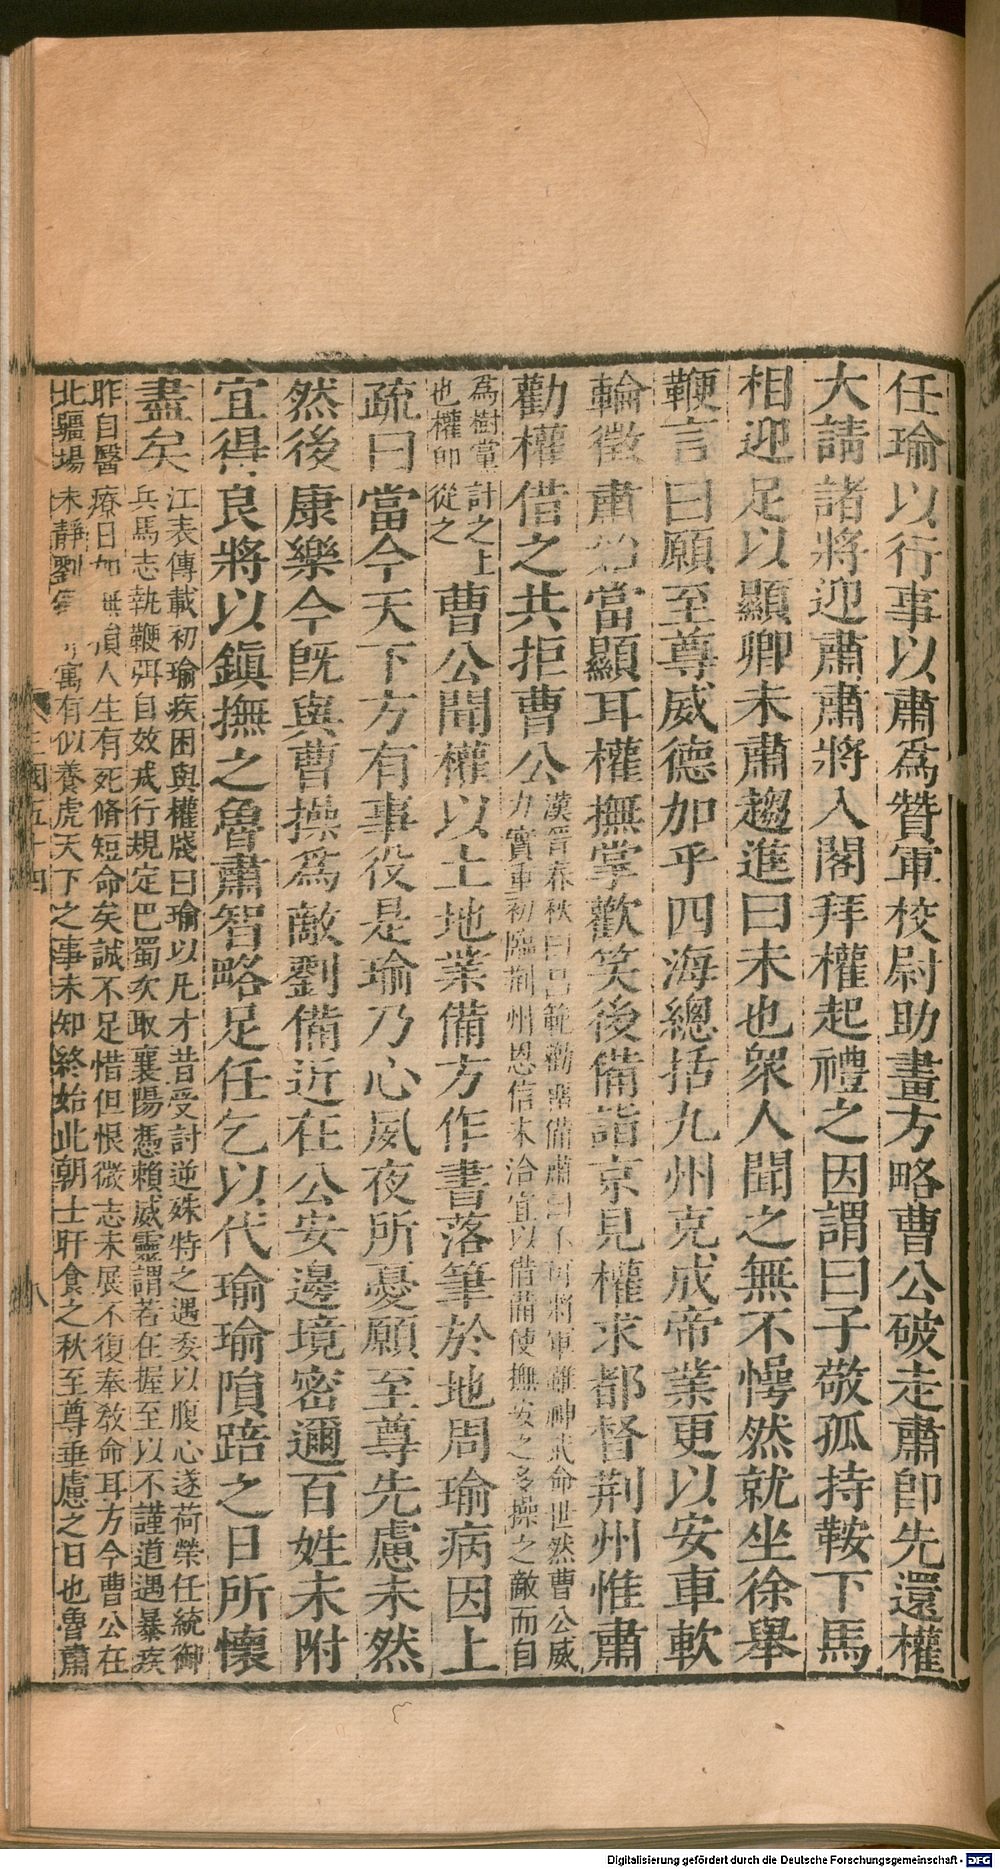 任瑜以行事以肅爲贊軍校尉助畫方略曹公破走肅即先還權
大請諸將迎肅肅將入閤拜權起禮之因謂曰子敬孤持鞍下馬
相迎足以顯卿未肅趨進曰未也衆人聞之無不愕然就坐徐舉
鞭言曰願至尊威德加乎四海總括九州克成帝業更以安車軟
輪徵肅始當顯耳權撫掌歡笑後備詣京見權求都督荆州惟肅
勸權借之共拒曹公漢晉春秋曰呂範勸留備肅曰不可將軍雖神武命世然曹公威
力實重初臨荆州恩信未洽宜以借備使撫安之多操之敵而自
爲樹黨計之上
也權即從之
曹公聞權以土地業備方作書落筆於地周瑜病因上
疏曰當今天下方有事役是瑜乃心夙夜所憂願至尊先慮未然
然後康樂今既與曹操爲敵劉備近在公安邊境密邇百姓未附
宜得良將以鎭撫之魯肅智略足任乞以代瑜瑜隕踣之日所懷
盡矣江表傳載初瑜疾困與權牋曰瑜以凡才昔受討逆殊特之遇委以腹心遂荷榮任統御
兵馬志執鞭弭自效戎行規定巴蜀次取襄陽憑賴威靈謂若在握至以不謹道遇暴疾
昨自醫療日加無損人生有死脩短命矣誠不足惜但恨微志未展不復奉敎命耳方今曹公在
北疆場未靜劉寓有似養虎天下之事未知終始此朝士旰食之秋至尊垂慮之日也魯肅
三國五十四
八
Digitalisierung gefördert durch die Deutsche Forschungsgemeinschaft - DFG